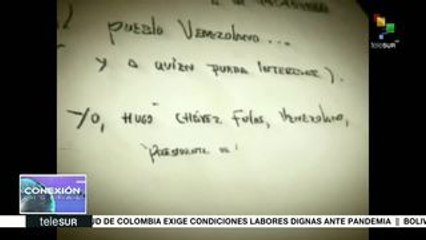 Pueblo Venezolano...
y a quien pueda interesar).
Yo, Hugo Chávez Frías, Venezolano,
teleSUR
CONEXIÓN
teleSUR UD DE COLOMBIA EXIGE CONDICIONES LABORES DIGNAS ANTE PANDEMIA || BOLIV